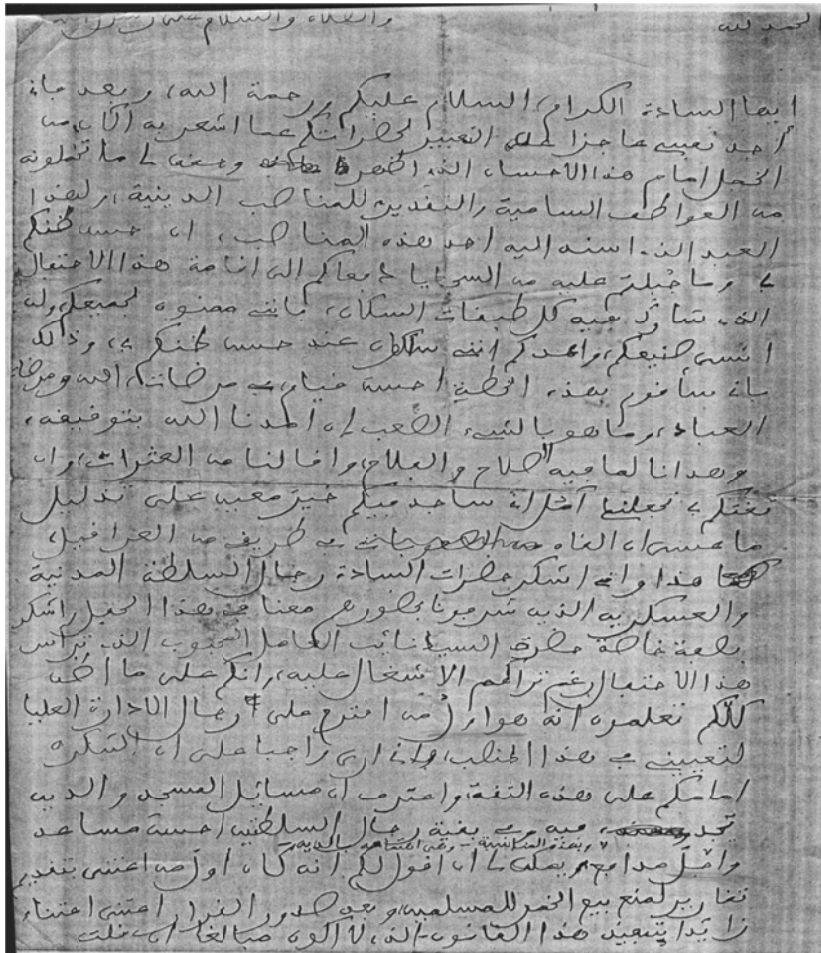 الحمد لله والصلاة والسلام على رسول الله
ايها السادة الكرام، السلام عليكم ورحمة الله، وبعد فإني
أجد نفسي عاجزا عن التعبير لحضراتكم عما اشعر به الآن من
الخجل امام هذا الاحساس الذي وما تحملونه
من العواطف السامية والتقدير للمناصب الدينية، ولهذا
العبد الذي اسند اليه احد هذه المناصب، ان حسن ظنكم
بي وما جبلتم عليه من السجايا دعاكم الى اقامة هذا الاحتفال
الذي شارك فيه كل طبقات السكان، فإني ممنون لجميعكم ولن
انسى صنيعكم، واعدكم انني سأكون عند حسن ظنكم بي، وذلك
بأني سأقوم بهذه الخطة احسن قيام في مرضات الله ومرضات
العباد، وما هو بالشيء الصعب إن امدنا الله بتوفيقه،
وهدانا لما فيه الصلاح والفلاح، واقالنا من العثرات، وان
ثقتكم بي تجعلني آمل اني ساجد فيكم خير معين على تذليل
ما عسى ان القاه في طريقي من العراقيل،
هذا واني اشكر حضرات السادة رجال السلطة المدنية
والعسكرية الذين شرفونا بحضورهم معنا في هذا الحفل واشكر
بصفة خاصة حضرة السيد نائب العامل المحبوب الذي ترأس
هذا الاحتفال رغم تراكم الاشغال عليه، وانكم على ما اظن
كلكم تعلمون انه هو اول من اقترح على رجال الادارة العليا
لتعييني في هذا المنصب، وإني ارى واجبا علي ان اشكره
امامكم على هذه الثقة، واعترف ان مسائل المسجد والدين
تجد فيه وفي بقية رجال السلطتين احسن مساعد
واقبل مدافع، يمكن لي ان اقول لكم انه كان اول من اعتنى بتقديم
تقارير لمنع بيع الخمر للمسلمين، وبعد صدور القرار اعتنى اعتناء
زائدا بتنفيذ هذا القانون الذي لا اكون مبالغا ان قلت